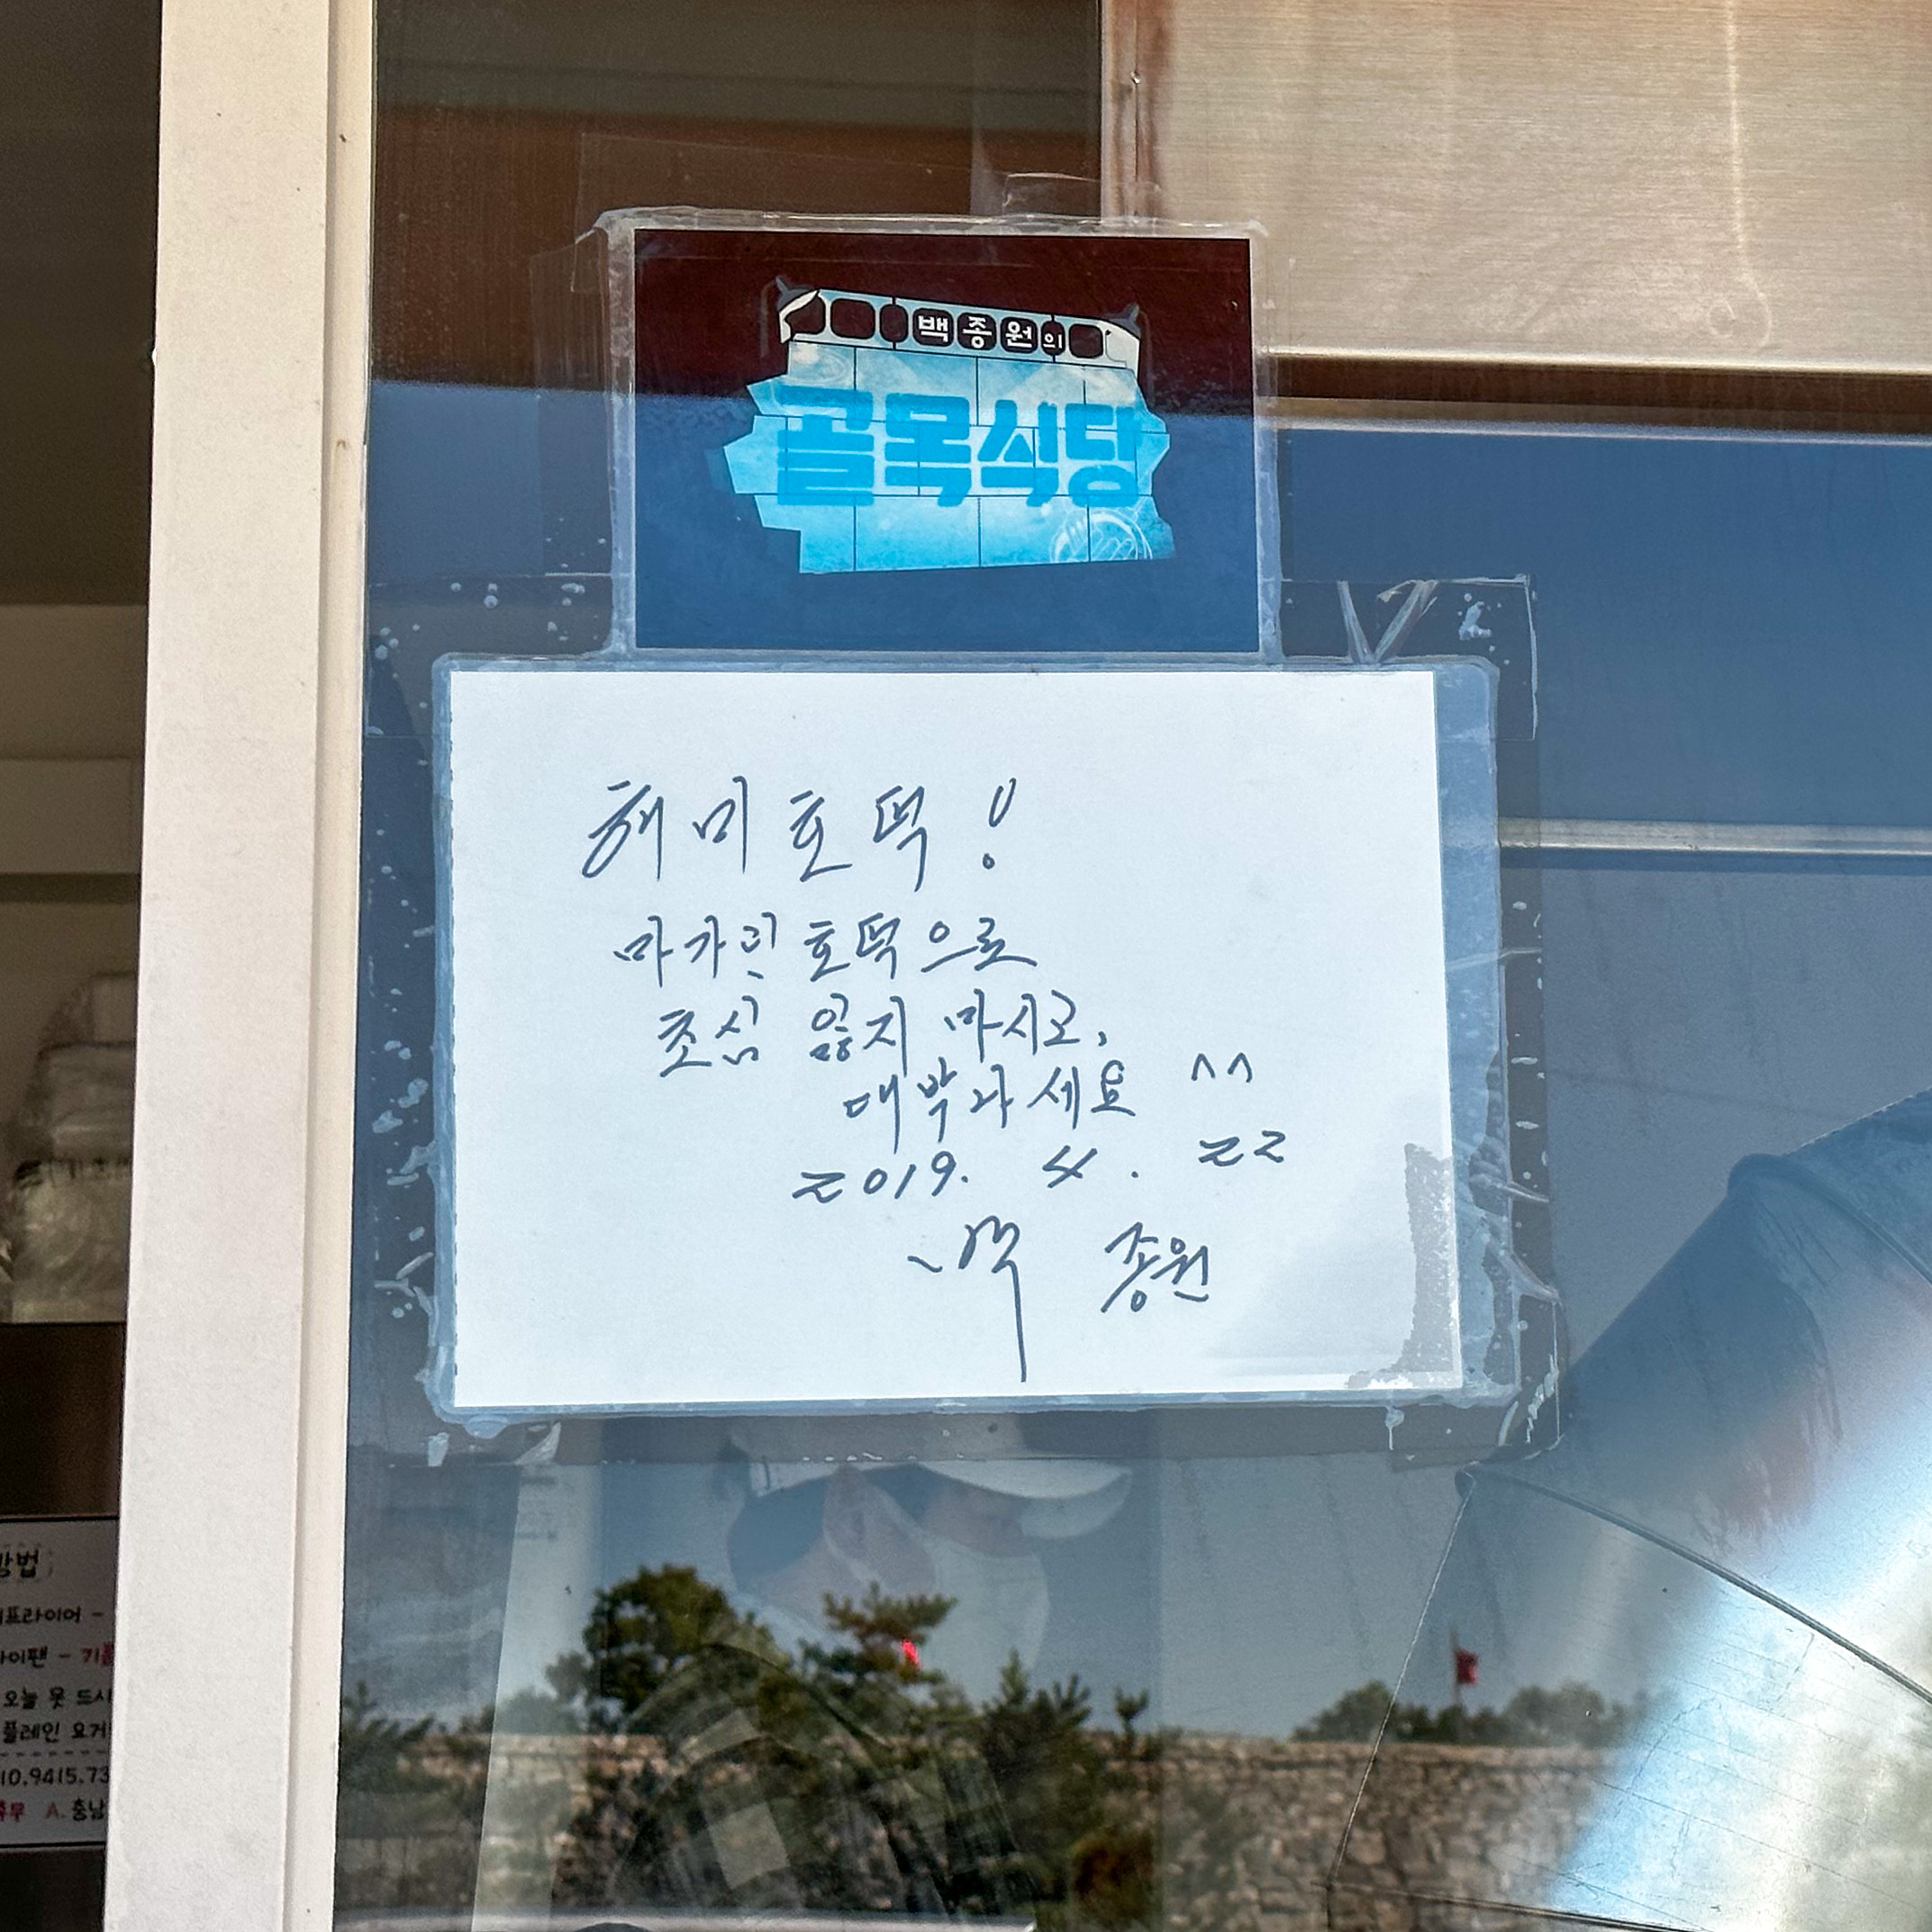 백종원의
골목식당
해미호떡!
마가린 호떡으로
초심 잃지 마시고,
대박나세요 ^^
2019. 4. 22
백종원
방법
프라이어 -
이팬 -
오늘 못 드시
플레인 요거
10.9415.73
A. 충남